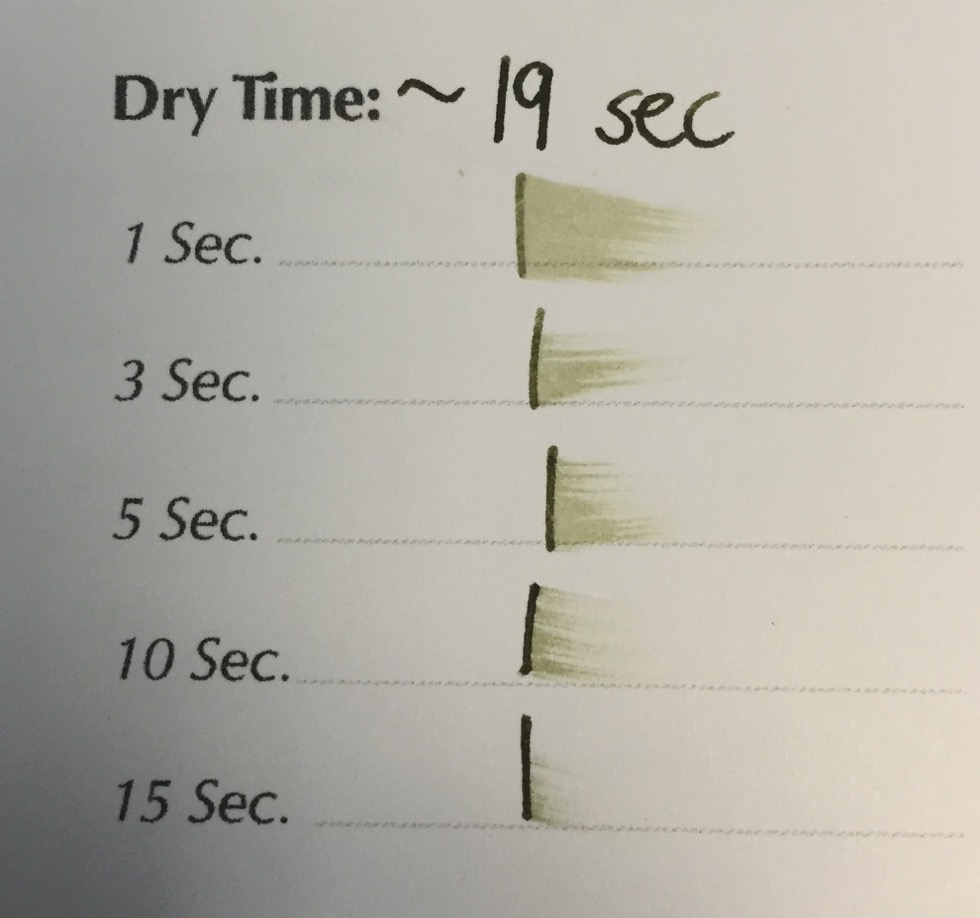 Dry Time: ~ 19 sec
1 Sec.
3 Sec.
5 Sec.
10 Sec.
15 Sec.